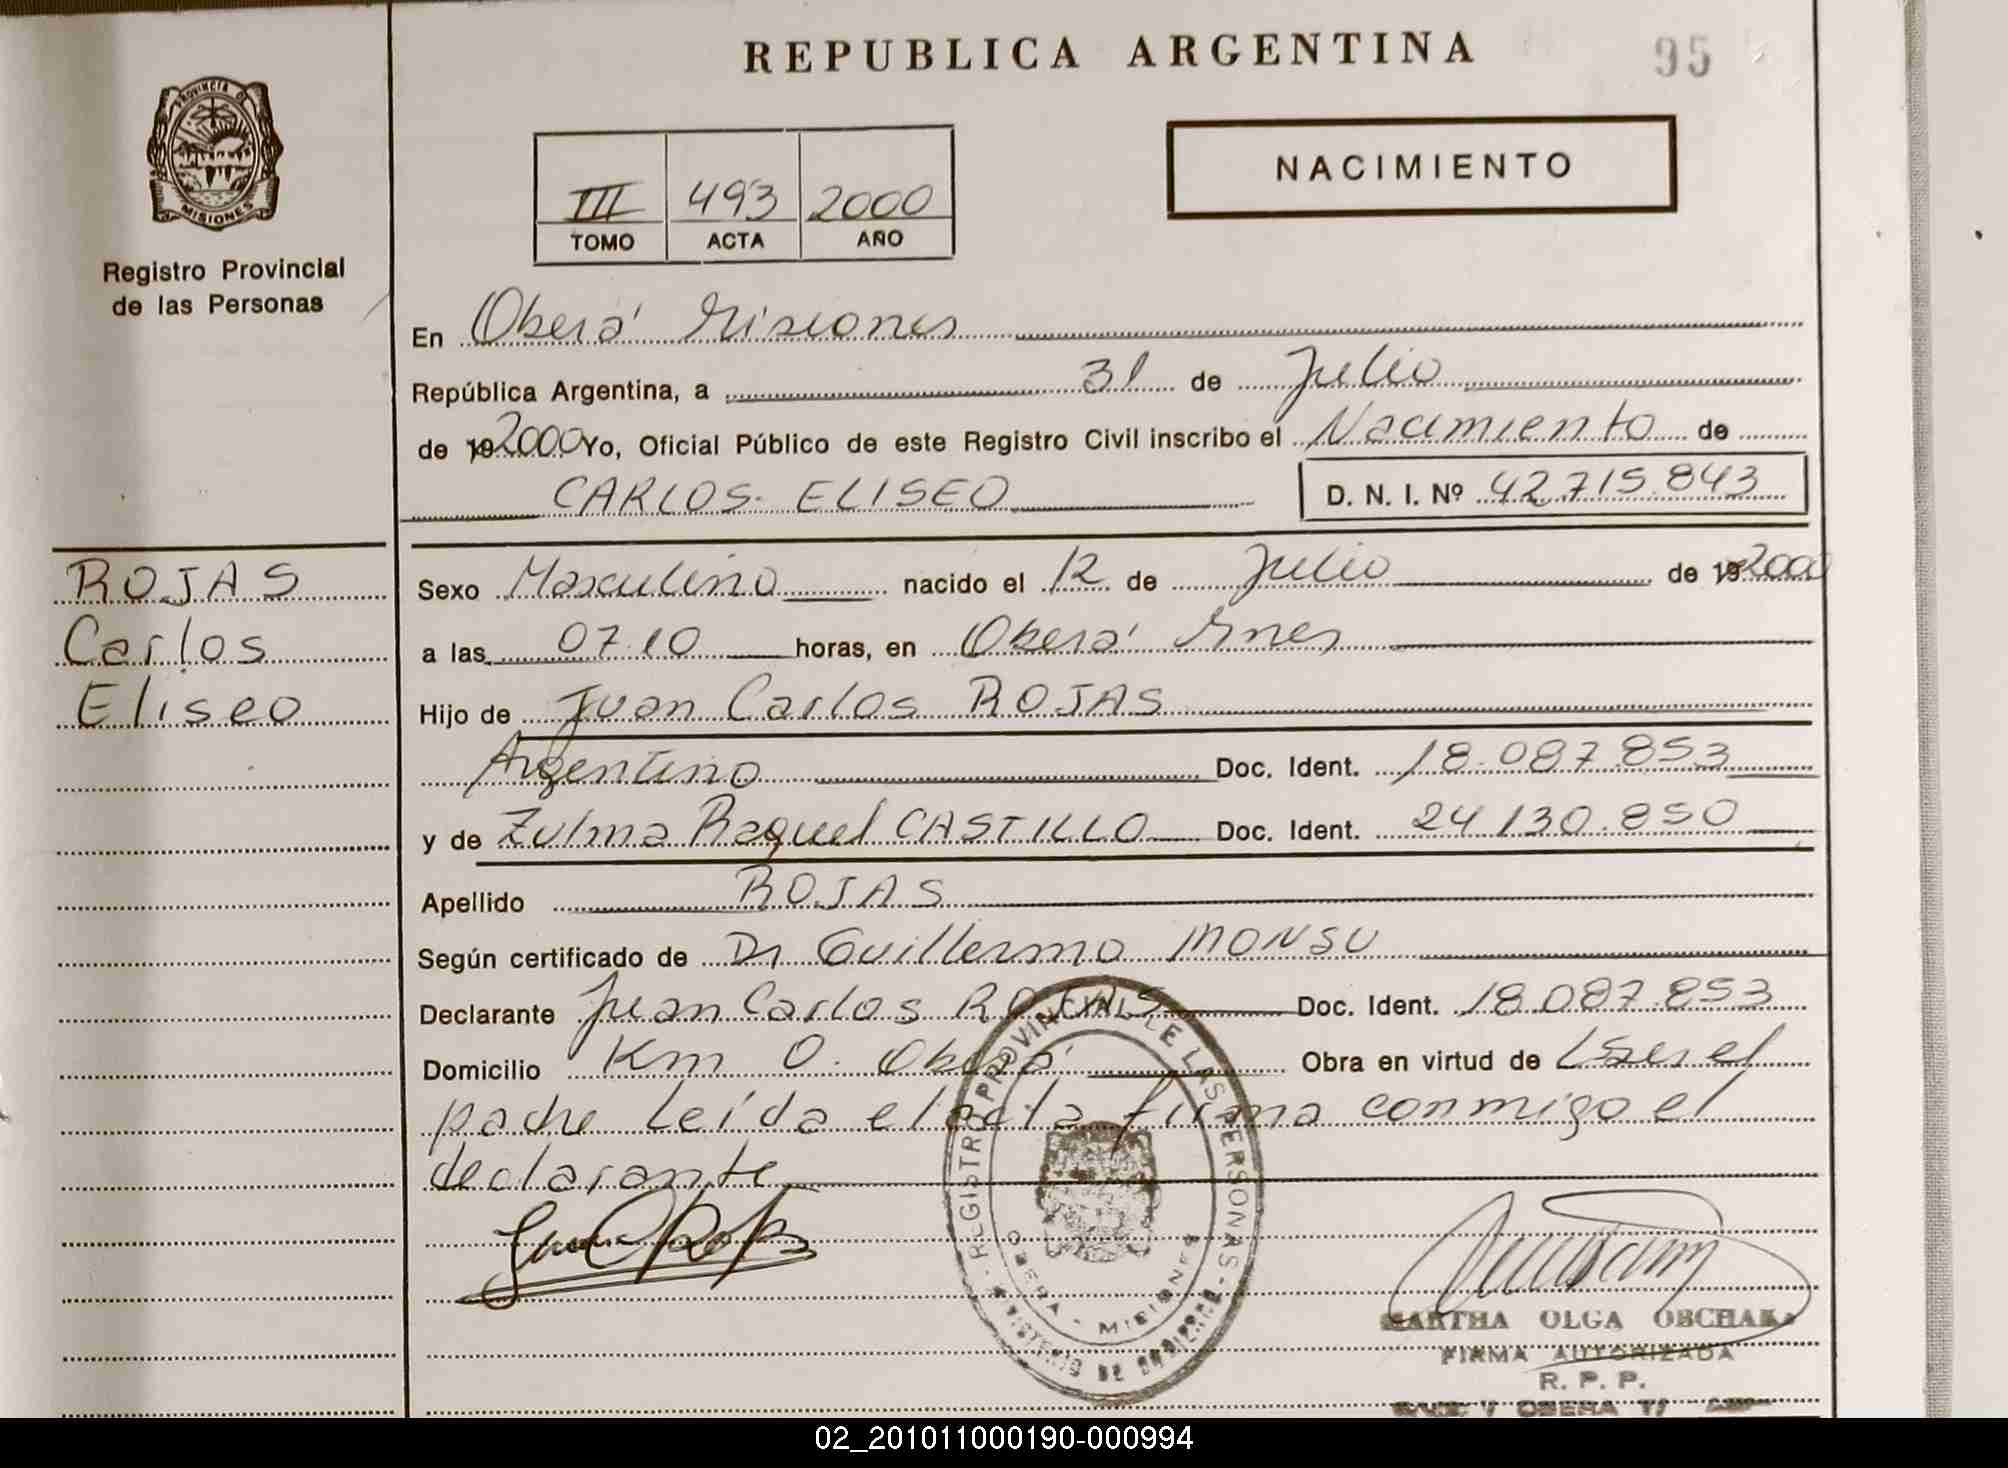 REPUBLICA ARGENTINA
95
PROVINCIA DE
MISIONES
Registro Provincial
de las Personas
III 493 2000
TOMO ACTA AÑO
NACIMIENTO
En Oberá Misiones
República Argentina, a 31 de Julio
de 192000 Yo, Oficial Público de este Registro Civil inscribo el Nacimiento de
CARLOS ELISEO D. N. I. Nº 42.715.843
ROJAS
Carlos
Eliseo
Sexo Masculino nacido el 12 de Julio de 192000
a las 07.10 horas, en Oberá Mnes
Hijo de Juan Carlos ROJAS
Argentino Doc. Ident. 18.087.853
y de Zulma Raquel CASTILLO Doc. Ident. 24.130.850
Apellido ROJAS
Según certificado de Dr Guillermo MONSU
Declarante Juan Carlos ROJAS Doc. Ident. 18.087.853
Domicilio Km 0. Oberá Obra en virtud de ser el
padre Leída el acta firma conmigo el
declarante
REGISTRO PROVINCIAL DE LAS PERSONAS
OBERA - MISIONES
MINISTERIO DE GOBIERNO
MARTHA OLGA OBCHAK
FIRMA AUTORIZADA
R. P. P.
OBERA
02_201011000190-000994